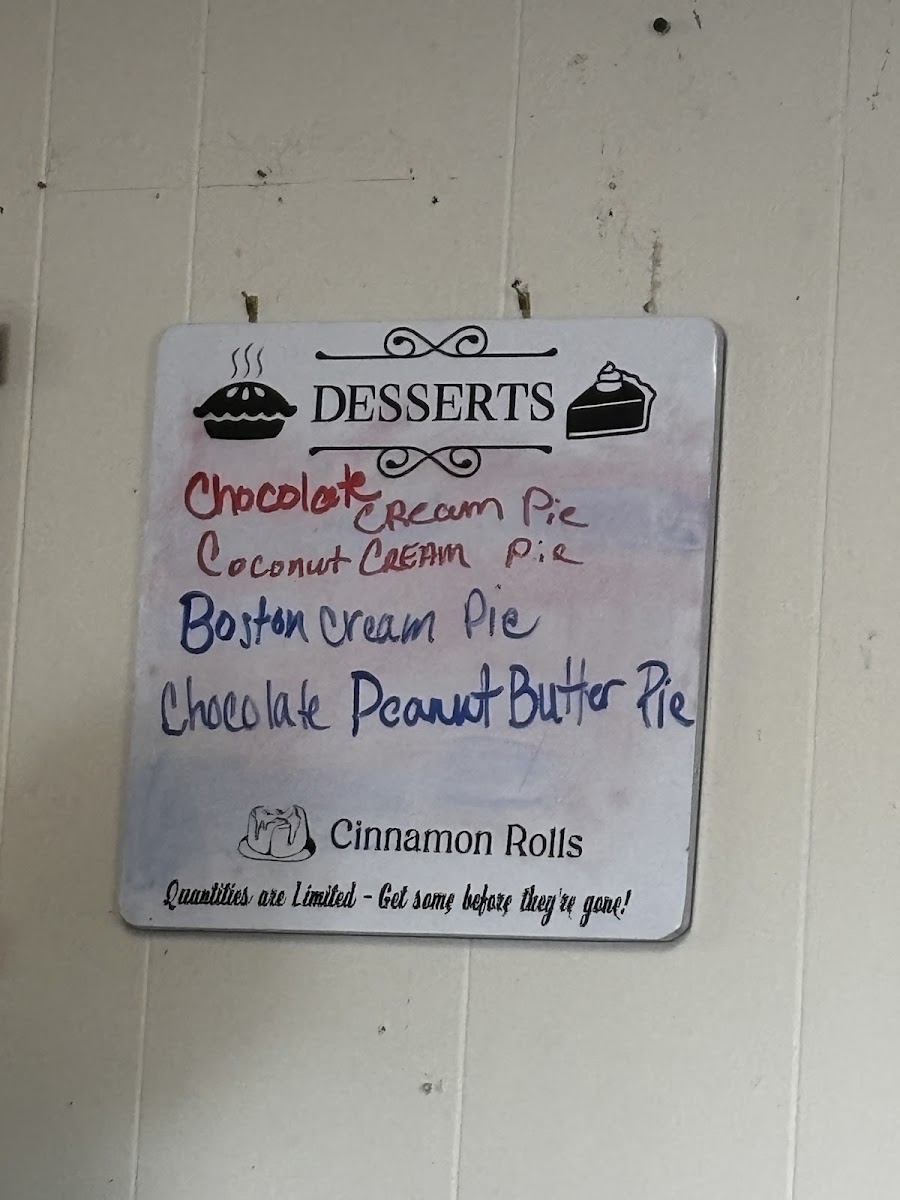 DESSERTS
Chocolate Cream Pie
Coconut CREAM Pie
Boston cream Pie
Chocolate Peanut Butter Pie
Cinnamon Rolls
Quantities are Limited - Get some before they're gone!